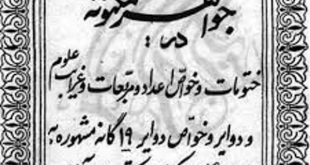 جواهر مکنونه
در:
ختومات و خواص اعداد و مربعات و غرائب علوم
و دوایر و خواص دوایر ۱۹ گانه مشهوره به